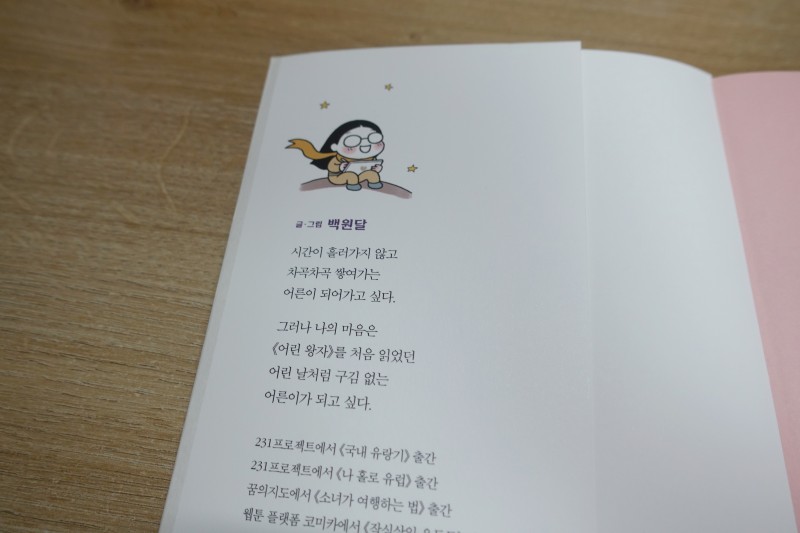 글·그림 백원달
시간이 흘러가지 않고
차곡차곡 쌓여가는
어른이 되어가고 싶다.
그러나 나의 마음은
《어린 왕자》를 처음 읽었던
어린 날처럼 구김 없는
어른이가 되고 싶다.
231프로젝트에서 《국내 유랑기》 출간
231프로젝트에서 《나 홀로 유럽》 출간
꿈의지도에서 《소녀가 여행하는 법》 출간
웹툰 플랫폼 코미카에서